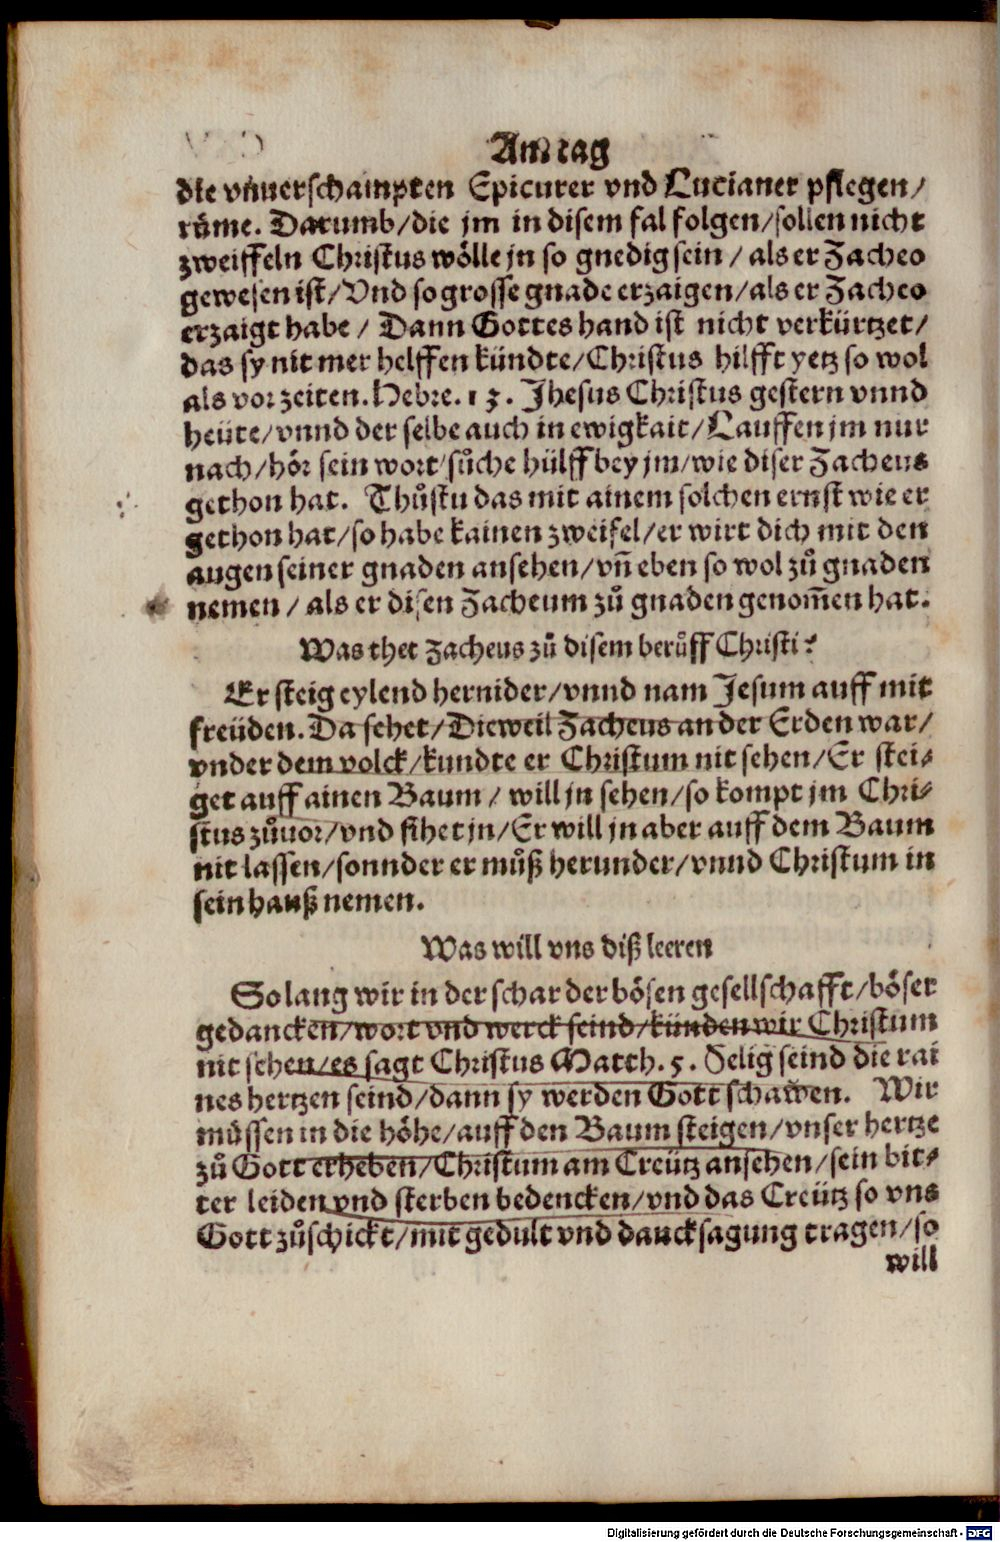 Am tag
die vnuerschampten Epicurer vnd Lucianer pflegen/
rüme. Darumb/die jm in disem fal folgen/sollen nicht
zweiffeln Christus wölle jn so gnedig sein / als er Zacheo
gewesen ist/Vnd so grosse gnade erzaigen/als er Zacheo
erzaigt habe / Dann Gottes hand ist nicht verkürtzet/
das sy nit mer helffen kündte/Christus hilfft yetz so wol
als vor zeiten. Hebre. 13. Jhesus Christus gestern vnnd
heüte/vnnd der selbe auch in ewigkait/Lauffen jm nur
nach/hör sein wort/sůche hülff bey jm/wie diser Zacheus
gethon hat. Thůstu das mit ainem solchen ernst wie er
gethon hat/so habe kainen zweifel/er wirt dich mit den
augen seiner gnaden ansehen/vñ eben so wol zů gnaden
nemen / als er disen Zacheum zů gnaden genom̃en hat.
Was thet Zacheus zů disem berůff Christi?
Er steig eylend hernider/vnnd nam Jesum auff mit
freüden. Da sehet/Dieweil Zacheus an der Erden war/
vnder dem volck/kundte er Christum nit sehen/Er stei-
get auff ainen Baum / will jn sehen/so kompt jm Chri-
stus zůuor/vnd sihet jn/Er will jn aber auff dem Baum
nit lassen/sonnder er můß herunder/vnnd Christum in
sein hauß nemen.
Was will vns diß leeren
So lang wir in der schar der bösen gesellschafft/böser
gedancken/wort vnd werck seind/künden wir Christum
nit sehen/es sagt Christus Matth. 5. Selig seind die rai
nes hertzen seind/dann sy werden Gott schawen. Wir
müssen in die höhe/auff den Baum steigen/vnser hertze
zů Gott erheben/Christum am Creütz ansehen/sein bit-
ter leiden vnd sterben bedencken/vnd das Creütz so vns
Gott zůschickt/mit gedult vnd dancksagung tragen/so
will
Digitalisierung gefördert durch die Deutsche Forschungsgemeinschaft - DFG